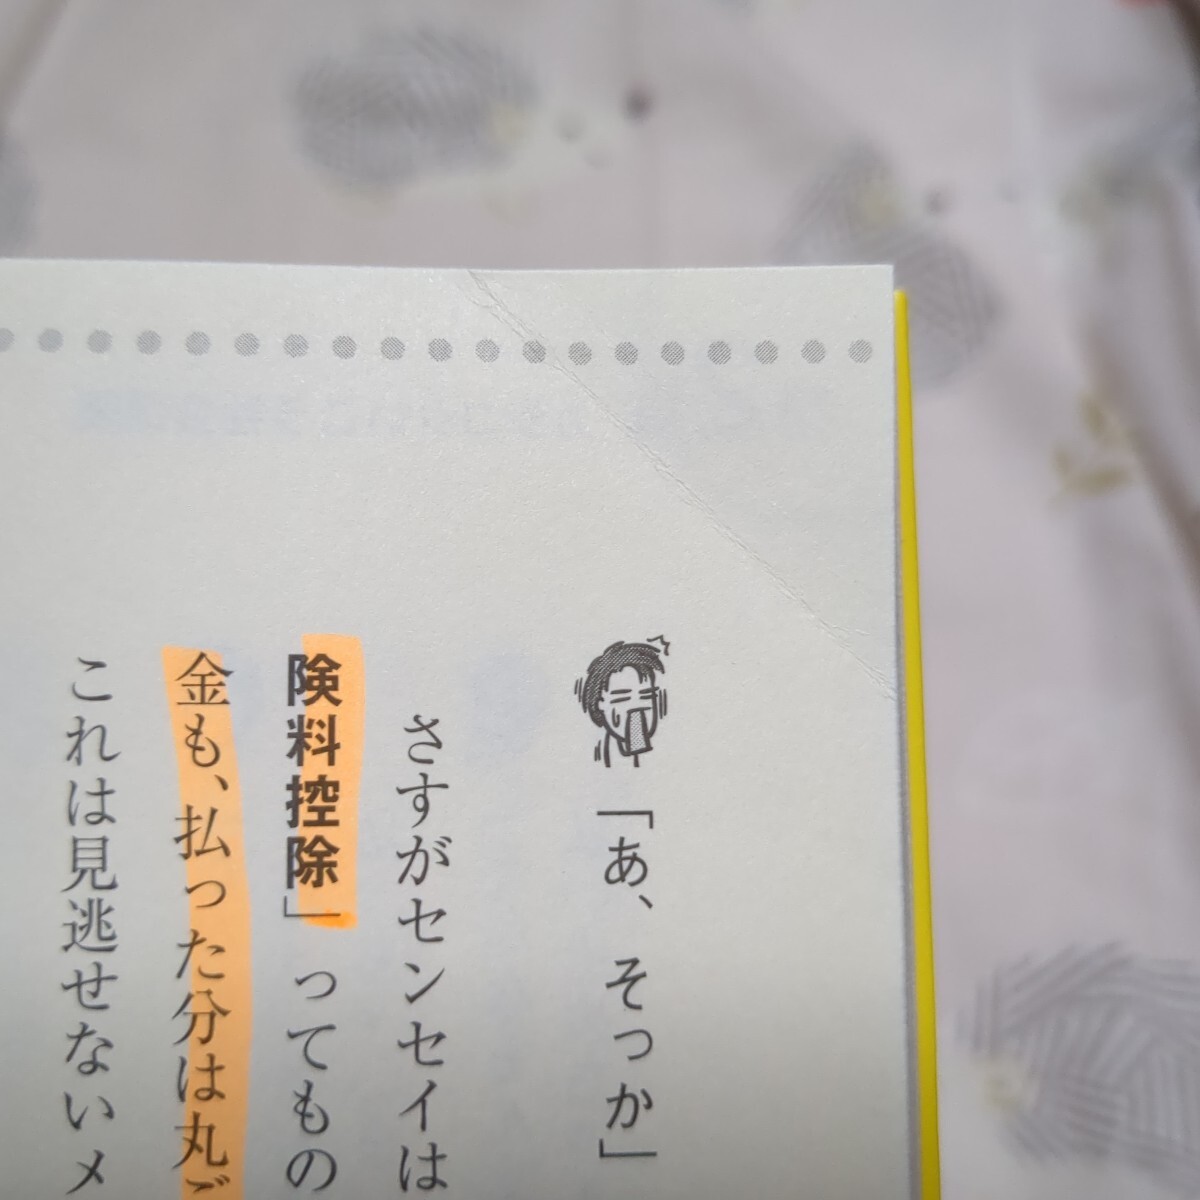 「あ、そっか」
さすがセンセイは
険料控除」ってもの
金も、払った分は丸ご
これは見逃せないメ